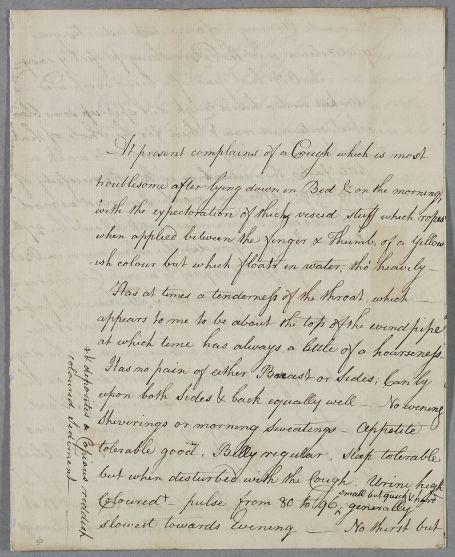 At present complains of a Cough which is most
troublesome after lying down in Bed & on the morning,
with the expectoration of thick viscid stuff which ropes
when applied between the finger & Thumb, of a Yellow
ish colour but which floats in water, tho' heavily —
Has at times a tenderness of the throat, which
appears to me to be about the top of the wind pipe
at which time has always a little of a hoarseness.
Has no pain of either Breast or Sides, Can ly
upon both Sides & back equally well — No evening
Shiverings or morning Sweatings — Appetite
tolerable good, Belly regular, Sleep tolerable
but when disturbed with the Cough. Urine high
Coloured + pulse from 80 to 96, small but quick & hard generally
slowest towards Evening — No thirst but
+ & deposites a Copious reddish
coloured Sediment